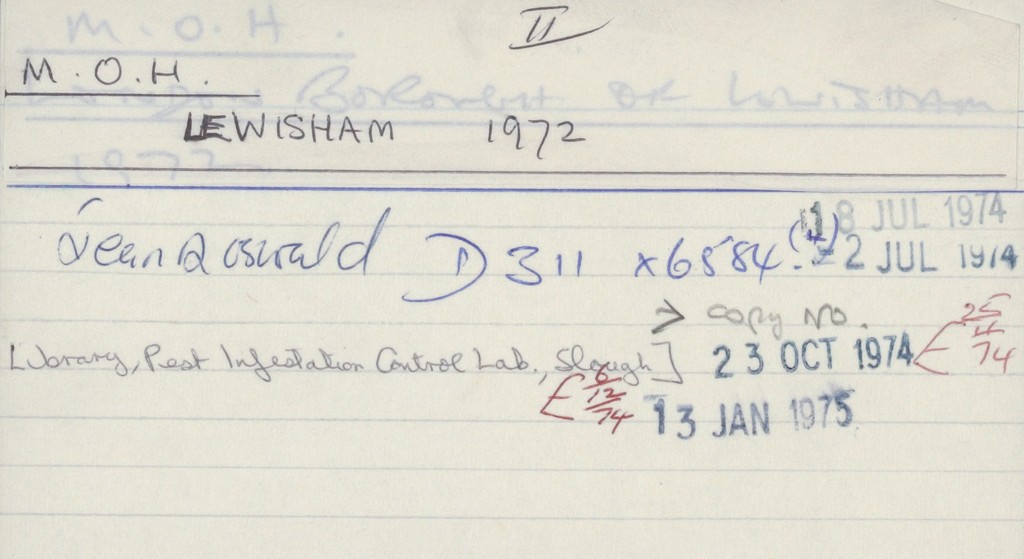 II
M. O. H.
M. O. H.
LONDON BOROUGH OF LEWISHAM
LEWISHAM 1972
1972
18 JUL 1974
Jean Oswald D 311 x6584 (4) - 2 JUL 1974
> Copy No. 25/4/74
Library, Pest Infestation Control Lab., Slough] 23 OCT 1974
6/12/74 13 JAN 1975